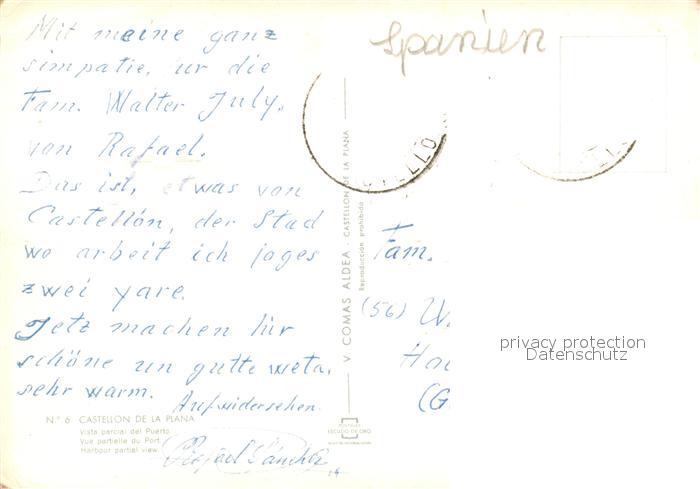 Mit meine ganz
simpatie, ur die
Fam. Walter July.
von Rafael.
Das ist, etwas von
Castellón, der Stad
wo arbeit ich jages
zwei yare.
Jetz machen hür
schöne un gutte weta.
sehr warm.
Aufwidersehen.
Rafael Sánchez
N.º 6 CASTELLON DE LA PLANA
Vista parcial del Puerto.
Vue partielle du Port.
Harbour partial view.
V. COMAS ALDEA - CASTELLON DE LA PLANA
Reproducción prohibida
POSTALES
ESCUDO DE ORO
Spanien
Fam.
(56) W
Ha
(G
privacy protection
Datenschutz